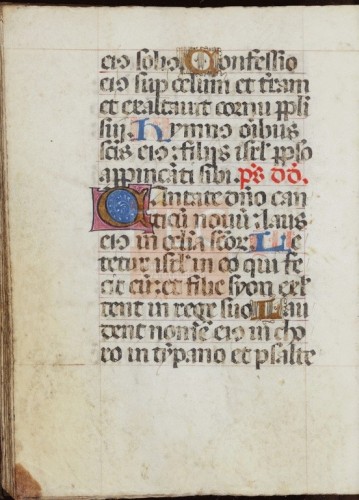 eiꝰ soliꝰ. Confessio
eiꝰ sup celum et t̃ram
et exaltauit cornu ppli
sui. Hymnꝰ õibus
scis eiꝰ: filijs isrl pplo
appinq̃ti sibi. pꝰs dd̃.
Cantate dño can
ticũ nouũ: laus
eiꝰ in ecl̃ia sc̃or. Le
tetur isrl in eo qui fe
cit eũ: et filie syon exl̃
tent in rege suo. Lau
dent nom̃e eiꝰ in cho
ro in tỹpano et psalte